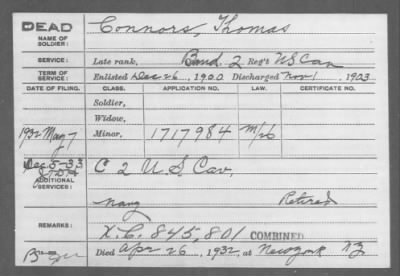 DEAD Connors, Thomas
NAME OF SOLDIER:
SERVICE: Late rank, Band, 2 Reg't U S Cav
TERM OF SERVICE: Enlisted Dec 26, 1900 Discharged Nov 1, 1903
DATE OF FILING. CLASS. APPLICATION NO. LAW. CERTIFICATE NO.
Soldier,
Widow,
1932 May 7 Minor, 1717984
Dec 5-33 C 2 U.S. Cav.
ADDITIONAL SERVICES:
Navy Retired
REMARKS: X.C. 845,801 COMBINED
Died Apr 26, 1932, at New York N.Y.